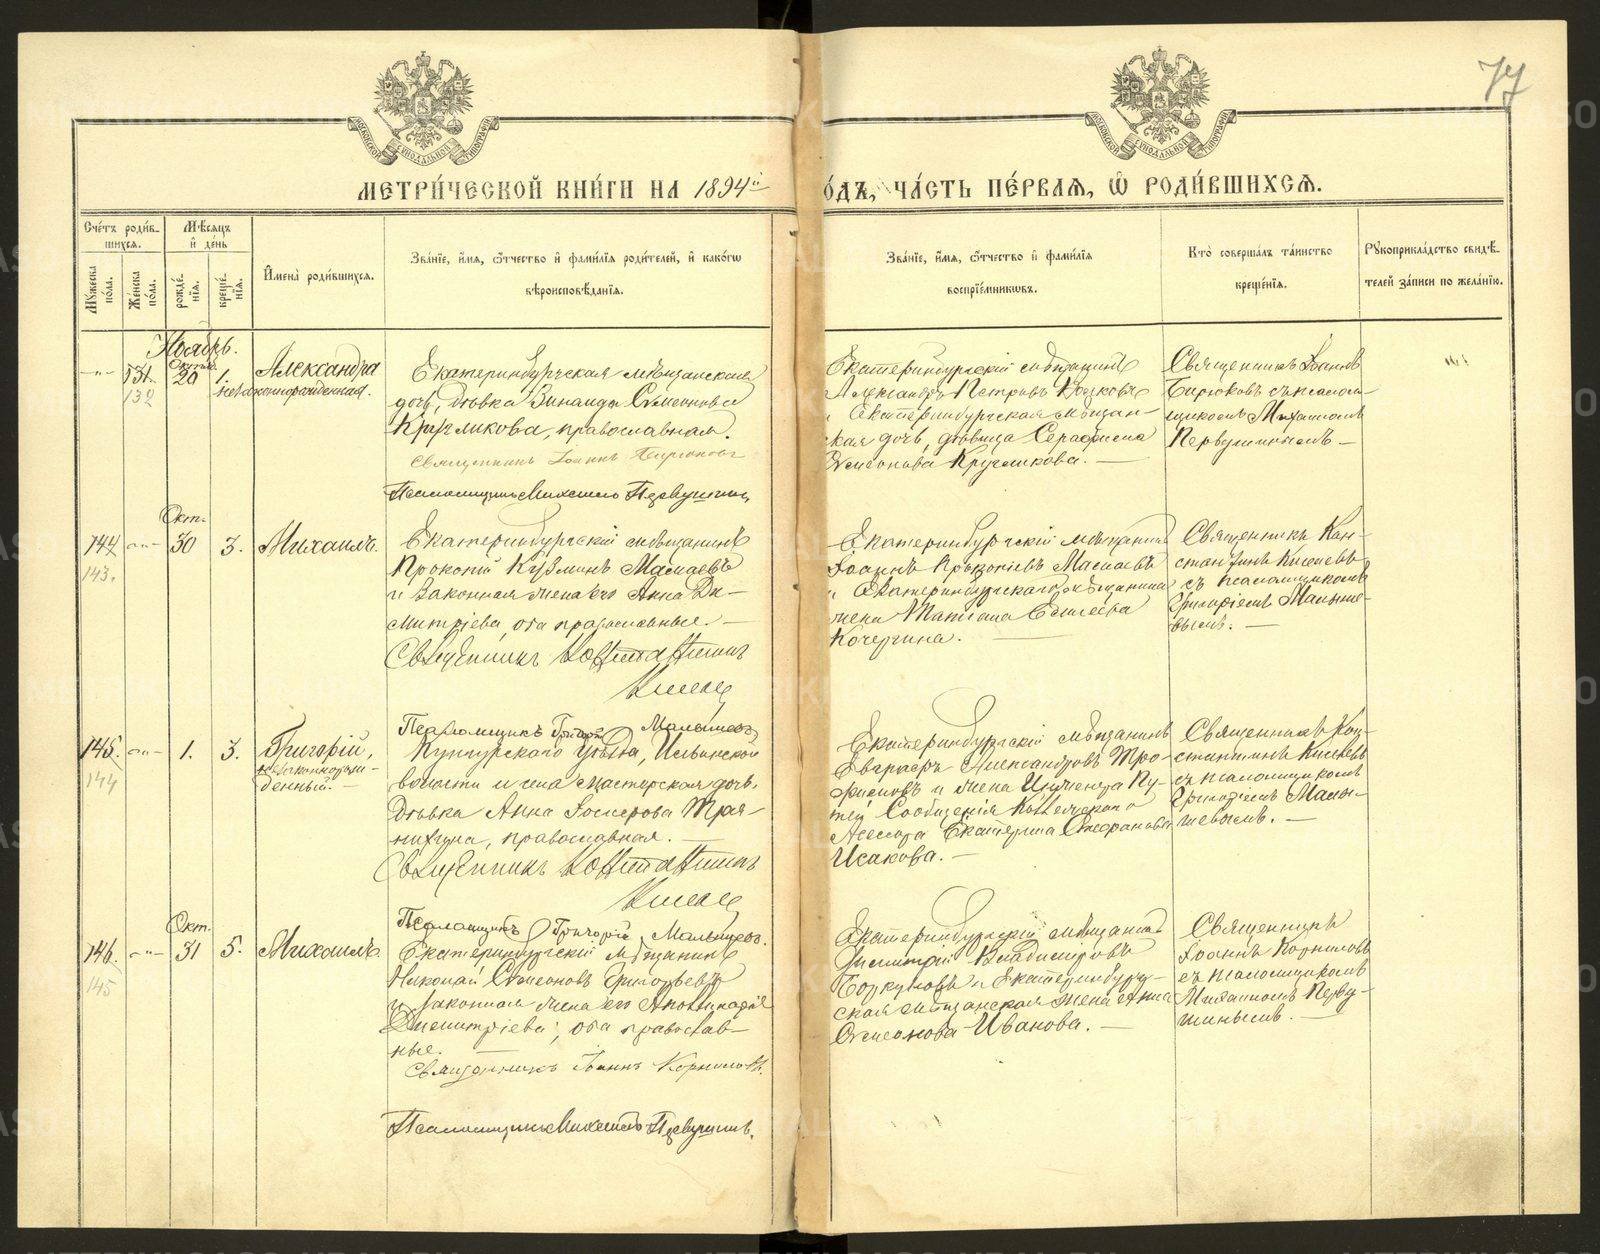 77
МЕТРИ́ЧЕСКОЙ КНИ́ГИ НА 1894й
ГО́ДЪ, ЧА́СТЬ ПЕ́РВАЯ, Ѡ РОДИ́ВШИХСЯ.
Сче́тъ роди́в-
шихся.
Мѣ́сяцъ
и҆ де́нь
Мꙋжеска по́ла.
Же́нска по́ла.
рожде́-
нїя.
креще́-
нїя.
И҆мена̀ роди́вшихся.
Зва́нїе, и҆́мя, ѻ҆́тчество и҆ фами́лїя роди́телей, и҆ како́гѡ
вѣроисповѣ́данїя.
Зва́нїе, и҆́мя, ѻ҆́тчество и҆ фами́лїя
воспрїе́мникѡвъ.
Кто̀ соверша́лъ та́инство
креще́нїя.
Рꙋкоприкла́дство свидѣ́-
телей за́писи по жела́нїю.
Ноябрь.
131. Октяб. 20 1. Александра
132 незаконнорожденная.
Екатеринбургская мѣщанская
дочь, дѣвка Зинаида Симеонова
Кругликова, православная.
Священникъ Іоаннъ
Псаломщикъ Михаилъ Первушинъ
Екатеринбургскій мѣщанинъ
Александръ Петровъ
и Екатеринбургская мѣщан-
ская дочь, дѣвица Серафима
Симеонова Кругликова. —
Священникъ Іоаннъ
съ псалом-
щикомъ Михаиломъ
Первушинымъ —
Окт.
144 -"- 30 3. Михаилъ.
143.
Екатеринбургскій мѣщанинъ
Прокопій Кузминъ Мамаевъ
и законная жена его Анна Ди-
митріева, оба православные. —
Священникъ Константинъ
Псаломщикъ Григорій Малышевъ
Екатеринбургскій мѣщанинъ
Іоаннъ Прокопіевъ Мамаевъ
и Екатеринбургскаго мѣщанина
жена Татіана
Кочергина. —
Священникъ Кон-
стантинъ
съ псаломщикомъ
Григоріемъ Малыше-
вымъ. —
145. -"- 1. 3. Григорій,
144 незаконнорож-
денный. —
Кунгурскаго уѣзда, Ильинской
волости и села мастерская дочь,
дѣвка Анна
православная. —
Священникъ Константинъ
Псаломщикъ Григорій Малышевъ.
Екатеринбургскій мѣщанинъ
Александровъ Тро-
фимовъ и жена Инженера Пу-
тей Сообщенія Коллежскаго
Асессора Екатерина Стефанова
Исакова. —
Священникъ Кон-
стантинъ
съ псаломщикомъ
Григоріемъ Малы-
шевымъ. —
Окт.
146. -"- 31 5. Михаилъ.
145
Екатеринбургскій мѣщанинъ
Николай Симеоновъ Григорьевъ
и законная жена его
Димитріева; оба православ-
ные. —
Священникъ Іоаннъ Корниловъ.
Псаломщикъ Михаилъ Первушинъ.
Екатеринбургскій мѣщанинъ
Димитрій Владиміровъ
и Екатеринбург-
ская мѣщанская жена Анна
Симеонова Иванова. —
Священникъ
Іоаннъ Корниловъ
съ псаломщикомъ
Михаиломъ Перву-
шинымъ. —